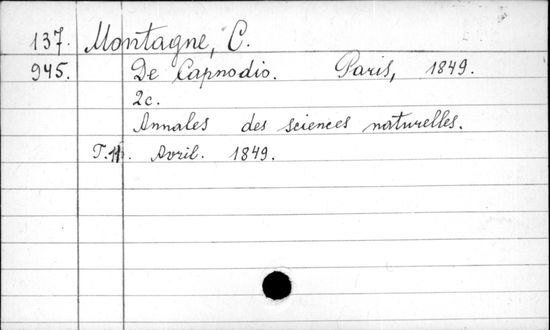 137. Montagne, C.
945. De Capnodio. Paris, 1849.
2c.
Annales des sciences naturelles.
Avril. 1849.